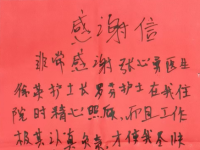 感谢信
非常感谢张心 医生
护士长 护士在我住
院时精心照顾，而且工作
极其认真负责，才使我尽快